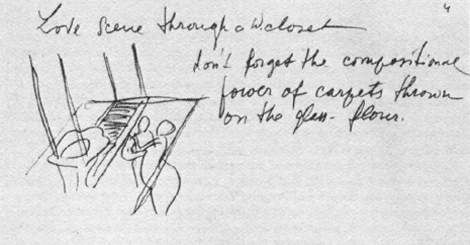 Love scene through a W.closet
don't forget the compositional
power of carpets thrown
on the glass-floor.